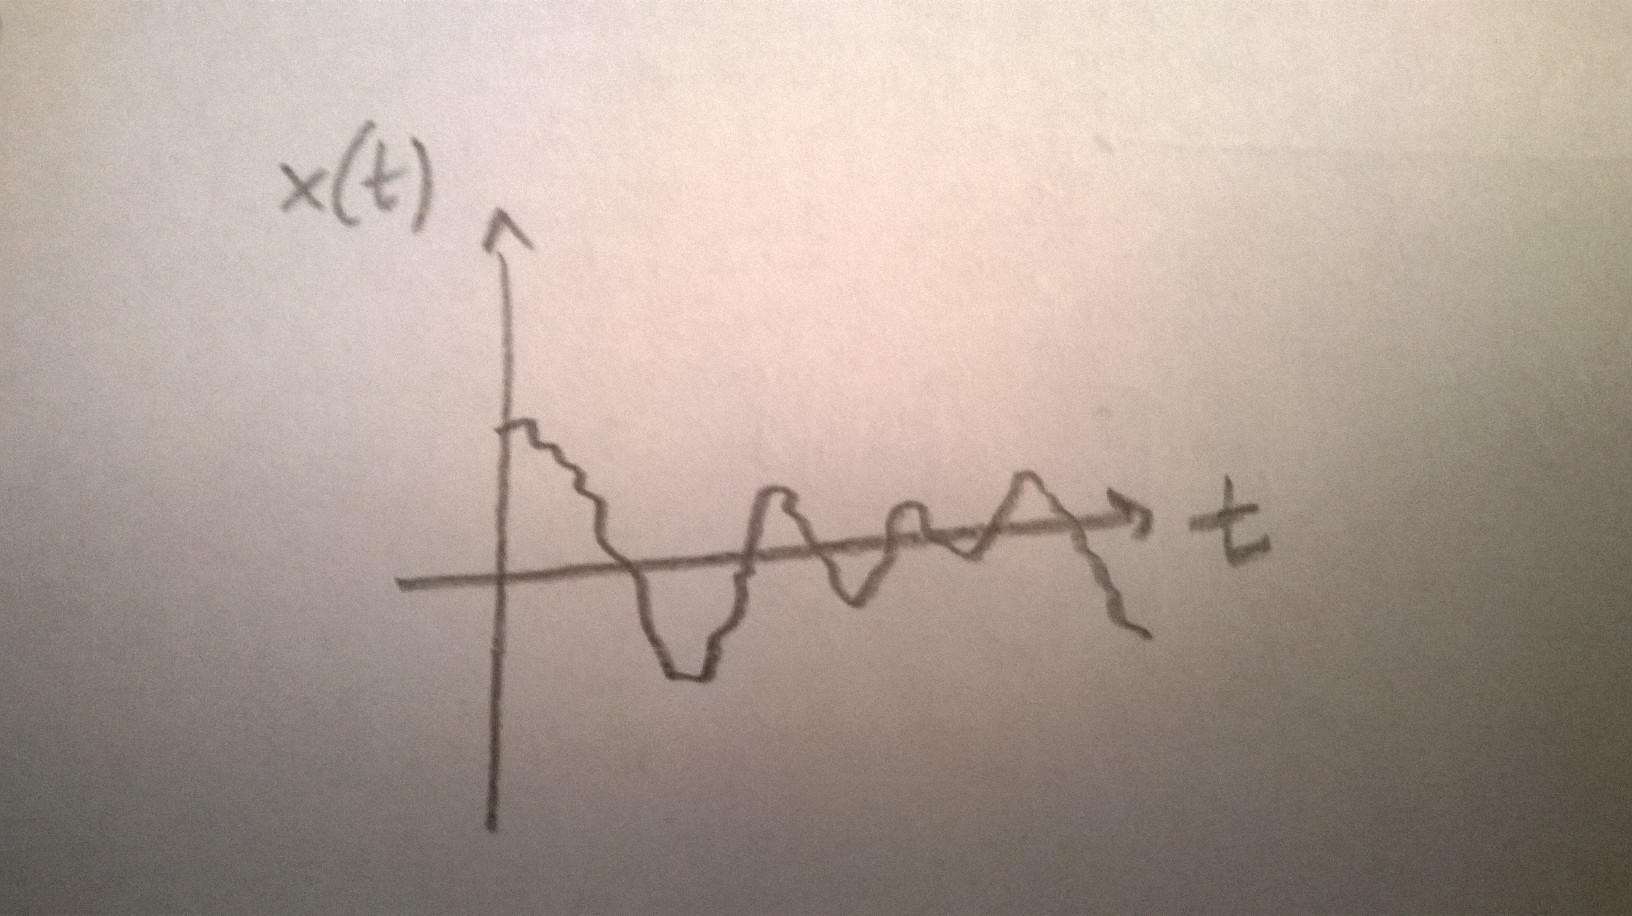 x(t)
t